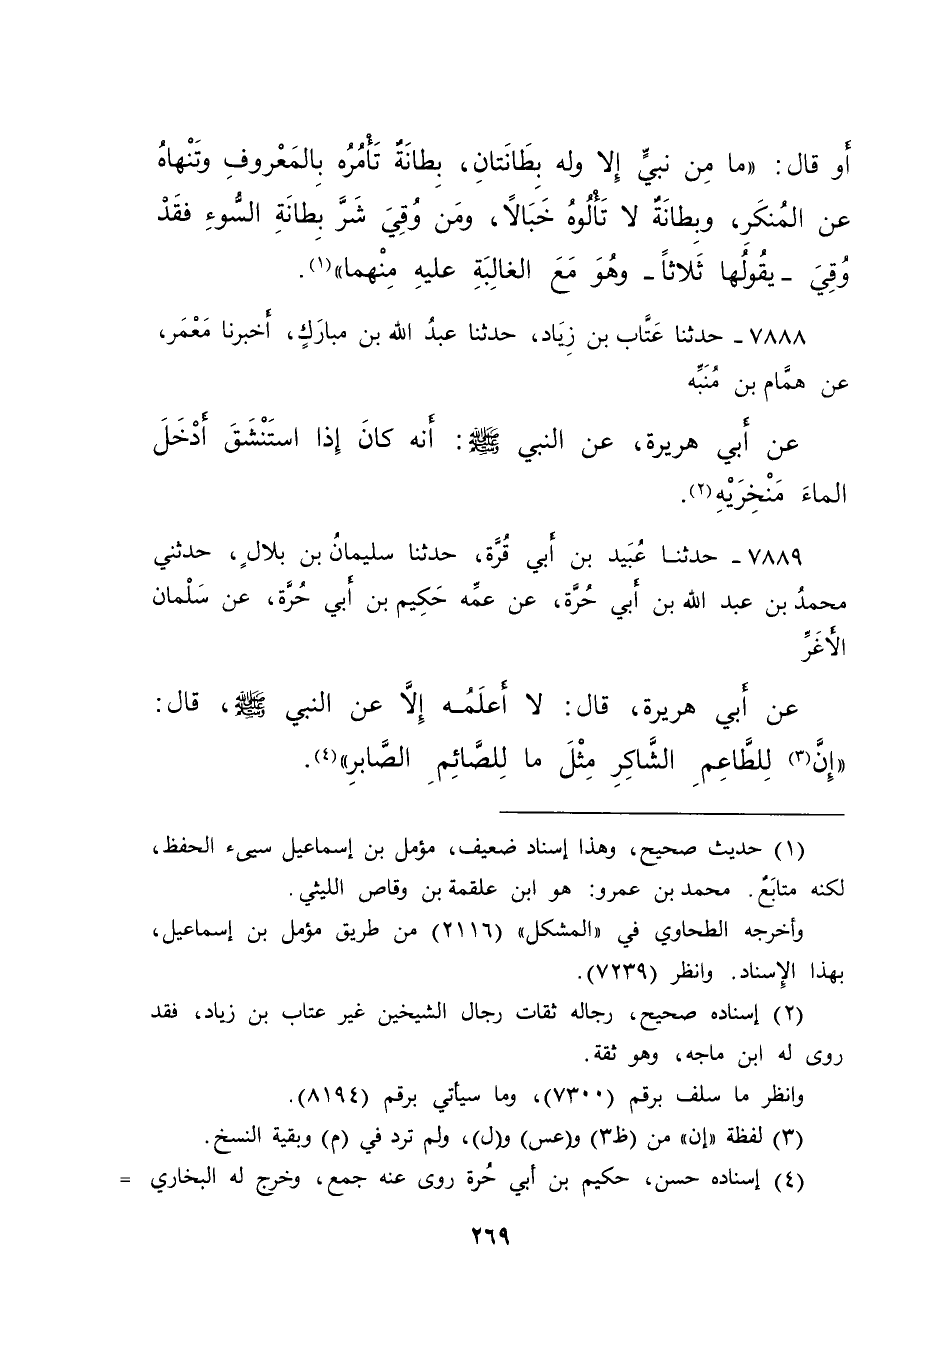 أَو قال: «ما مِن نبيٍّ إلا وله بِطَانَتانِ، بِطانَةٌ تَأْمُرُه بِالمَعْروفِ وتَنْهاهُ
عن المُنكَرِ، وبِطانَةٌ لا تَأْلُوهُ خَبَالًا، ومَن وُقِيَ شَرَّ بِطانَةِ السُّوءِ فقَدْ
وُقِيَ ـ يقُولُها ثَلاثاً ـ وهُوَ مَعَ الغالِبَةِ عليهِ مِنْهما»(١).
٧٨٨٨ ـ حدثنا عَتَّاب بن زِيَاد، حدثنا عبدُ الله بن مبارَكٍ، أَخبرنا مَعْمَر،
عن همَّام بن مُنَبِّه
عن أَبي هريرة، عن النبي ﷺ: أَنه كانَ إِذا استَنْشَقَ أَدْخَلَ
الماءَ مَنْخِرَيْهِ(٢).
٧٨٨٩ ـ حدثنا عُبَيد بن أَبي قُرَّة، حدثنا سليمانُ بن بلالٍ، حدثني
محمدُ بن عبد الله بن أَبي حُرَّة، عن عمِّه حَكِيم بن أَبي حُرَّة، عن سَلْمان
الأَغَرِّ
عن أَبي هريرة، قال: لا أَعلَمُه إِلَّا عن النبي ﷺ، قال:
«إِنَّ(٣) لِلطَّاعِمِ الشَّاكِرِ مِثْلَ ما لِلصَّائِمِ الصَّابرِ»(٤).
(١) حديث صحيح، وهذا إسناد ضعيف، مؤمل بن إسماعيل سيىء الحفظ،
لكنه متابَعٌ. محمد بن عمرو: هو ابن علقمة بن وقاص الليثي.
وأخرجه الطحاوي في «المشكل» (٢١١٦) من طريق مؤمل بن إسماعيل،
بهذا الإِسناد. وانظر (٧٢٣٩).
(٢) إسناده صحيح، رجاله ثقات رجال الشيخين غير عتاب بن زياد، فقد
روى له ابن ماجه، وهو ثقة.
وانظر ما سلف برقم (٧٣٠٠)، وما سيأتي برقم (٨١٩٤).
(٣) لفظة «إن» من (ظ٣) و(عس) و(ل)، ولم ترد في (م) وبقية النسخ.
(٤) إسناده حسن، حكيم بن أبي حُرة روى عنه جمع، وخرج له البخاري =
٢٦٩